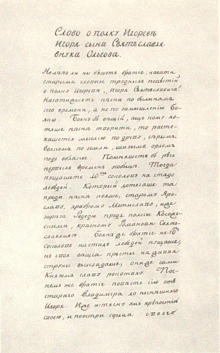 Слово о полку Игоревѣ
Игоря сына Святъславля
внука Ольгова.
Не лѣпо ли ны бяшетъ братіе, начати
старыми словесы трудныхъ повѣстій
о полку Игоревѣ, Игоря Святъславлича!
начати же ся тъй пѣсни по былинамъ
сего времени, а не по замышленію
Бояню. Боянъ бо вѣщій, аще кому хо-
тяше пѣснь творити, то расте-
кашется мыслію по древу, сѣрымъ
волкомъ по земли, шизымъ орломъ
подъ облакы. Помняшеть бо
времянъ усобіцѣ. Тогда
пущашеть соколовь на стадо
лебедей. Который дотечаше, та
преди пѣснь пояше, старому Яро-
славу, храброму Мстиславу, иже
зарѣза Редедю предъ полкы Касож-
скыми, красному Романови Святъ-
славличю. Боянъ же братіе, не
соколовь на стадо лебедей пущаше,
нъ своя вѣщіа прьсты на живая
струны въскладаше; они же сами
Княземъ славу рокотаху. Поч-
немъ же братіе повѣсть сію отъ
стараго Владимера до нынѣшняго
Игоря. Иже истягну умь крѣпостію
своею, и поостри сердца своего